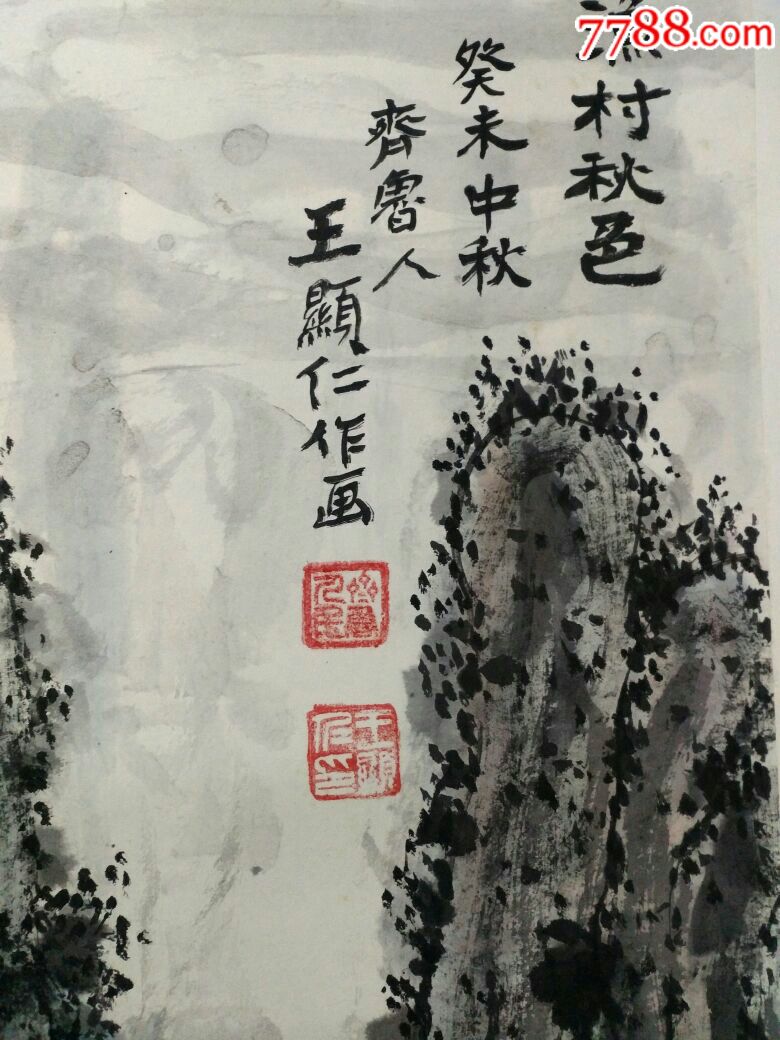 7788.com
村秋色
癸未中秋
齊魯人
王顯仁作画
王顯仁印